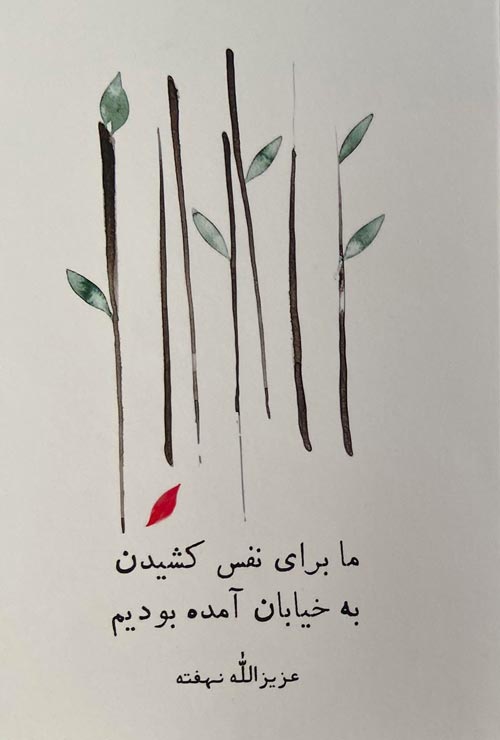 ما برای نفس کشیدن
به خیابان آمده بودیم
عزیزالله نهفته